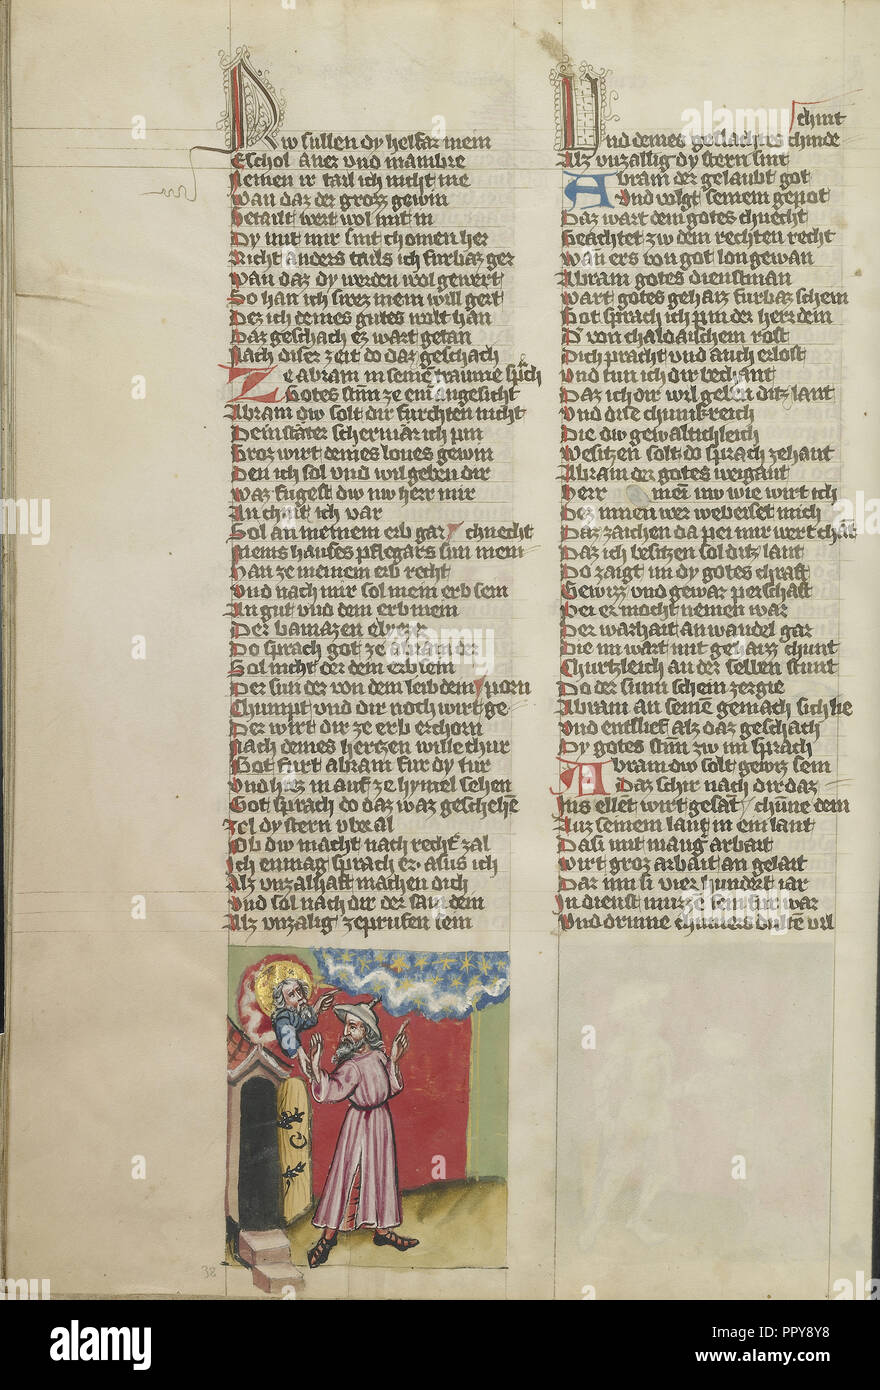 Dy sullen dy helfar mein
Eschol aner vnd mambre
Nemen ir tail ich nicht me
Wan daz der grozz gewin
Getailt wert wol mit in
Dy mit mir sint chomen her
Nicht anders tails ich furbaz ger
Wan daz dy werden wol gewert
So han ich swez mein will gert
Dez ich deines gutes wolt han
Daz geschach ez wart getan
Nach diser zeit do daz geschach
Ze abram in seinē traume sprach
Gotes stim ze eim angesicht
Abram dw solt dir furchten nicht
Dein stater schermar ich pin
Groz wirt deines lones gewin
Den ich sol vnd wil geben dir
Waz fugest dw nw herr mir
An chint ich var
Sol an meinem erb gar chnecht
Meins hauses pflegars sun mein
Han ze meinem erb recht
Vnd nach mir sol mein erb sein
An gut vnd dem erb mein
Der damazen elyezer
Do sprach got ze abram der
Sol nicht der dein erb sein
Der sun der von dem leib dein porn
Chumpt vnd dir noch wirt ge
Der wirt dir ze erb erchorn
Nach deines hertzen wille chur
Got furt abram fur dy tur
Vnd hiez in auf ze hymel sehen
Got sprach do daz waz geschehē
Zel dy stern vberal
Ob dw macht nach recht zal
Ich enmag sprach er asus ich
Alz vnzalhaft machen dich
Vnd sol nach dir der sam dein
Alz vnzalig ze prufen sein
chint
Vnd deines geslachtes chinde
Alz vnzallig dy stern sint
Abram der gelaubt got
Vnd volgt seinem gepot
Daz wart dem gotes chnecht
Geachtet zw dem rechten recht
Wan ers von got lon gewan
Abram gotes dienstman
Wart gotes gehaiz furbaz schein
Got sprach ich pin der her dein
Dˢ von chaldaischem rost
Dich pracht vnd auch erlost
Vnd tun ich dir bechant
Daz ich dir wil geben ditz lant
Vnd dise chunikreich
Die dw gewaltichleich
Wesitzen solt do sprach zehant
Abram der gotes weigant
Herr mein nw wie wirt ich
Dez innen wer weweiset mich
Daz zaichen da pei mir wert chāt
Daz ich besitzen sol ditz lant
Do zaigt im dy gotes chraft
Gewizz vnd gewar perschaft
Pei er mocht nemen war
Der warhait an wandel gar
Die im wart mit gehaizz chunt
Churtzleich an der selben stunt
Do der sunn schein zergie
Abram an seinē gemach sich lie
Vnd entslief alz daz geschach
Dy gotes stim zw im sprach
Abram dw solt gewiz sein
Daz schir nach dir daz
Ins ellēt wirt gesāt chūne dein
Auz seinem lant in ein lant
Da si mit manig arbait
Wirt groz arbait an gelait
Dar inn si vier hundert iar
In dienst muzze sein fur war
Vnd drinne chumers dulten vil
38
alamy
Image ID: PPY8Y8
www.alamy.com